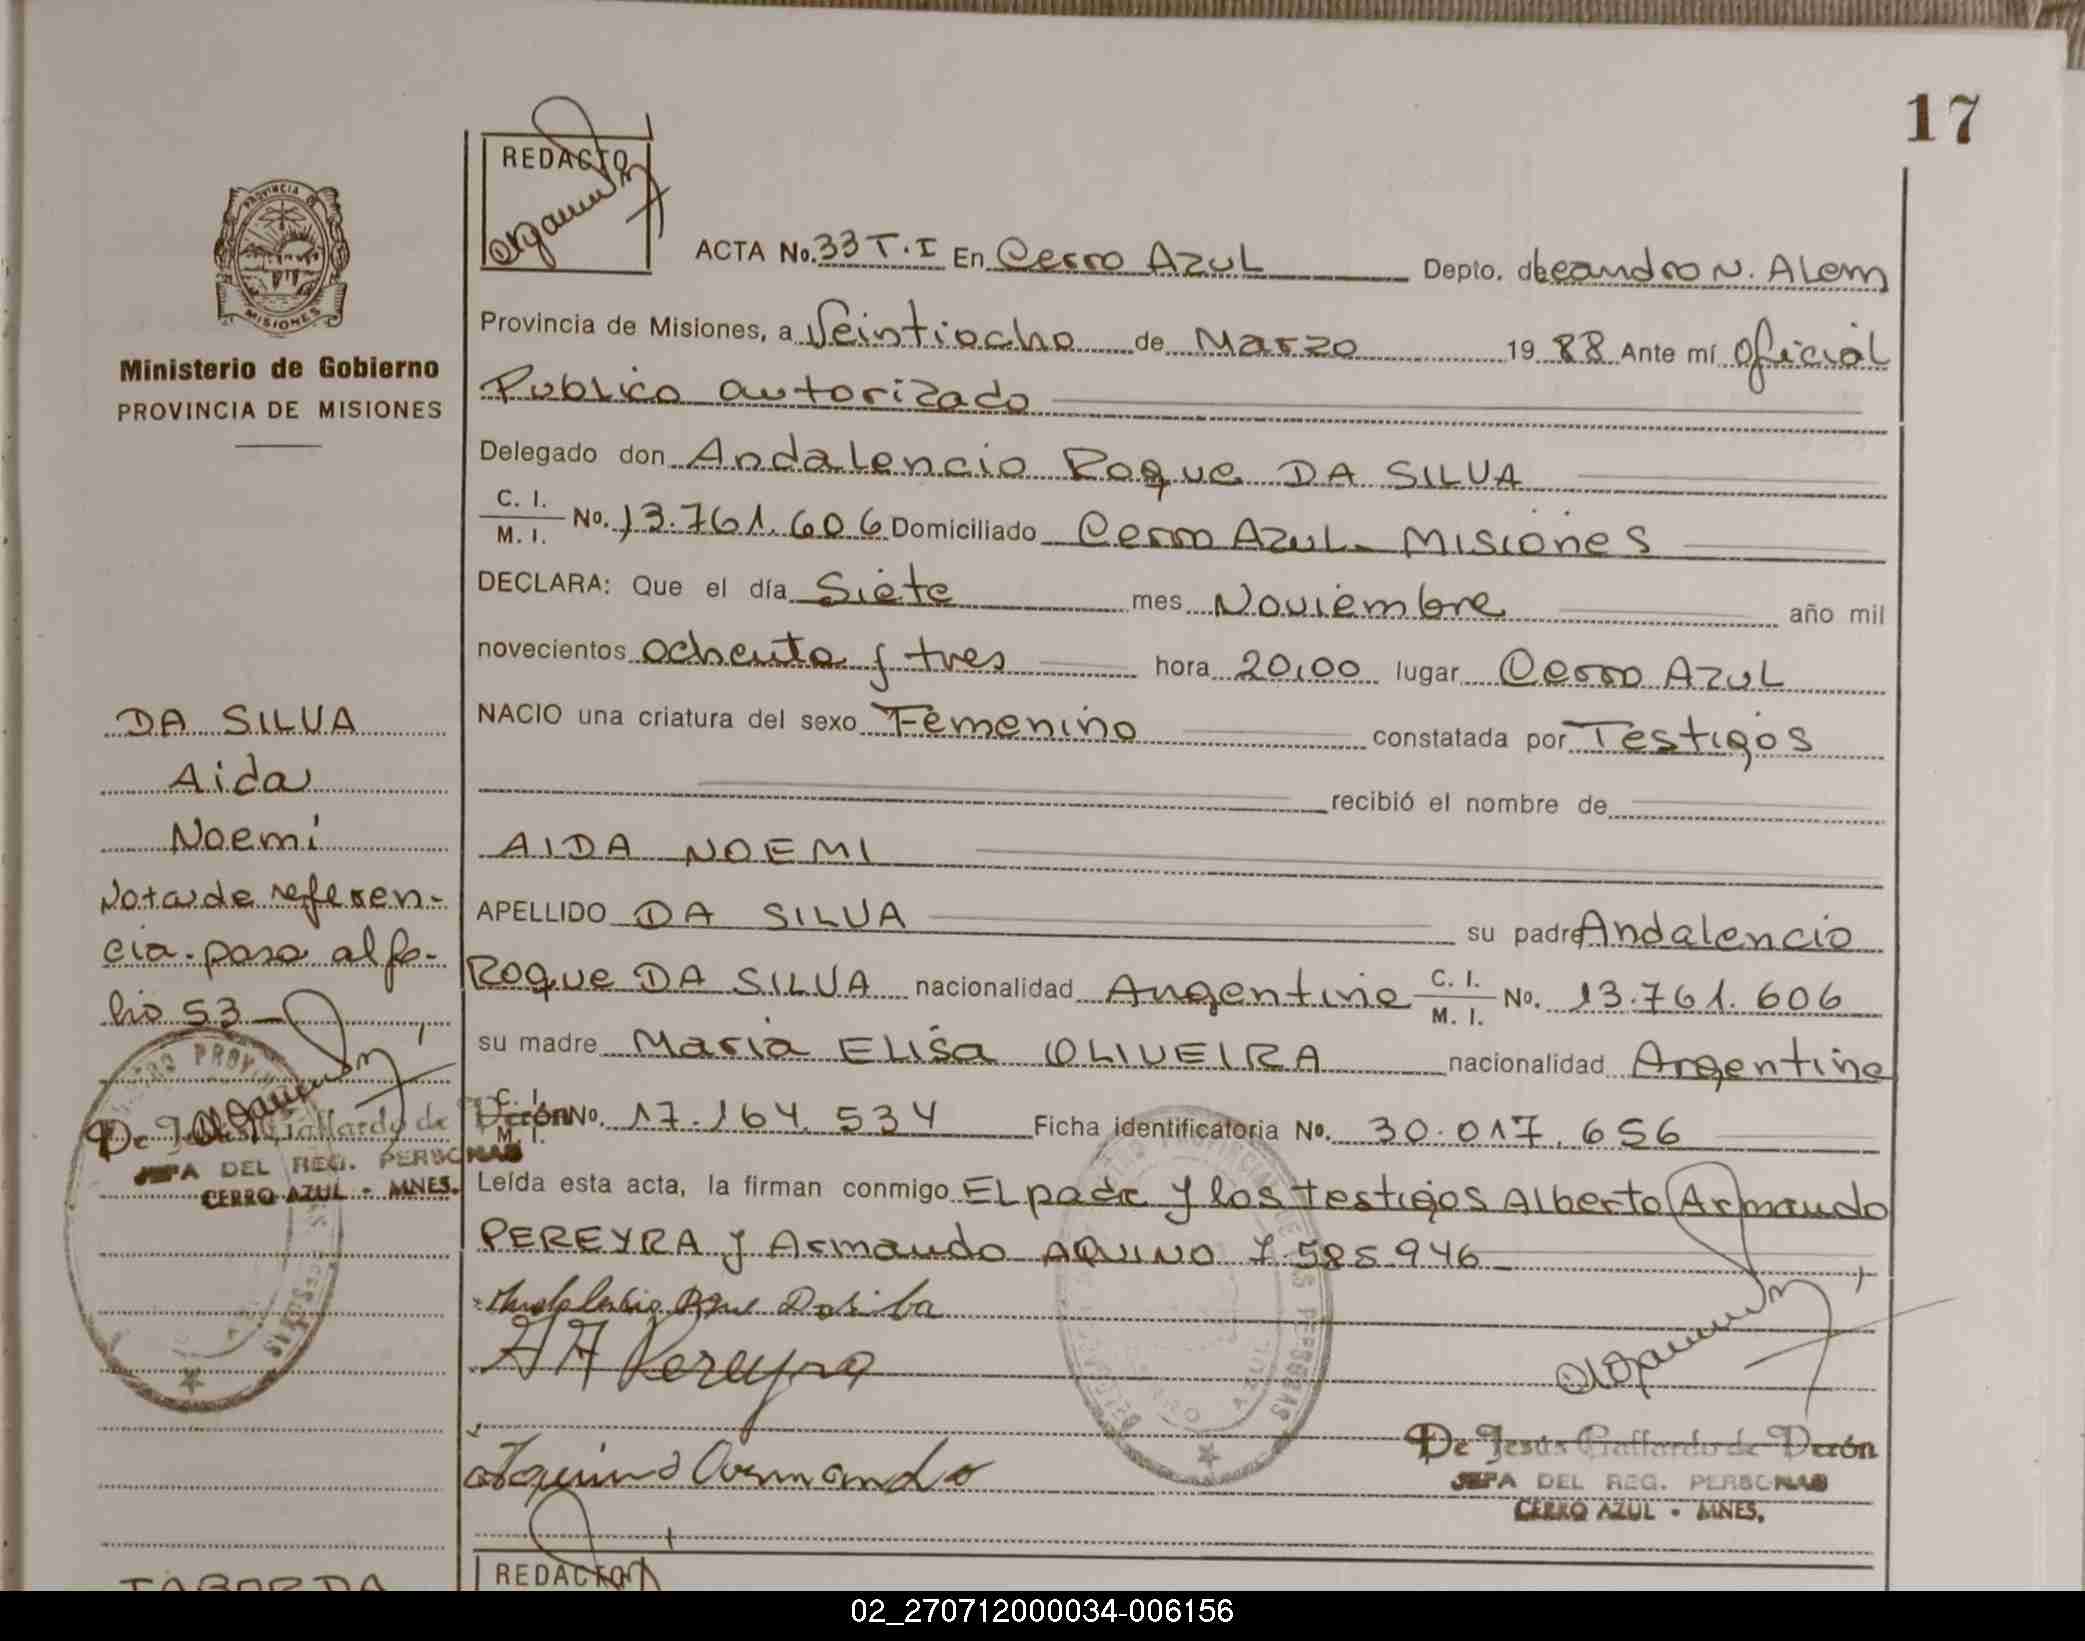 17
REDACTO
PROVINCIA
MISIONES
ACTA No. 33 T.I En Cerro Azul Depto. de Leandro N. Alem
Provincia de Misiones, a Veintiocho de Marzo 19 88 Ante mí Oficial
Ministerio de Gobierno
PROVINCIA DE MISIONES
Publico autorizado
Delegado don Andalencio Roque DA SILVA
C. I.
M. I. No. 13.761.606 Domiciliado Cerro Azul - Misiones
DECLARA: Que el día Siete mes Noviembre año mil
novecientos ochenta y tres hora 20,00 lugar Cerro Azul
NACIO una criatura del sexo Femenino constatada por Testigos
recibió el nombre de
AIDA NOEMI
APELLIDO DA SILVA su padre Andalencio
Roque DA SILVA nacionalidad Argentina C. I. M. I. No. 13.761.606
su madre Maria Elisa OLIVEIRA nacionalidad Argentina
C. I. M. I. No. 17.164.534 Ficha identificatoria No. 30.017.656
Leída esta acta, la firman conmigo El padre y los testigos Alberto Armando
PEREYRA y Armando AQUINO 7.585.946
A A Pereyra
Aquino Armando
De Jesús Gallardo de Derón
JEFA DEL REG. PERSONAS
CERRO AZUL - MNES.
DA SILVA
Aida
Noemí
Nota de referen-
cia - pasa al fo-
lio 53
De Jesús Gallardo de Derón
JEFA DEL REG. PERSONAS
CERRO AZUL - MNES.
TABORDA
REDACTO
02_270712000034-006156